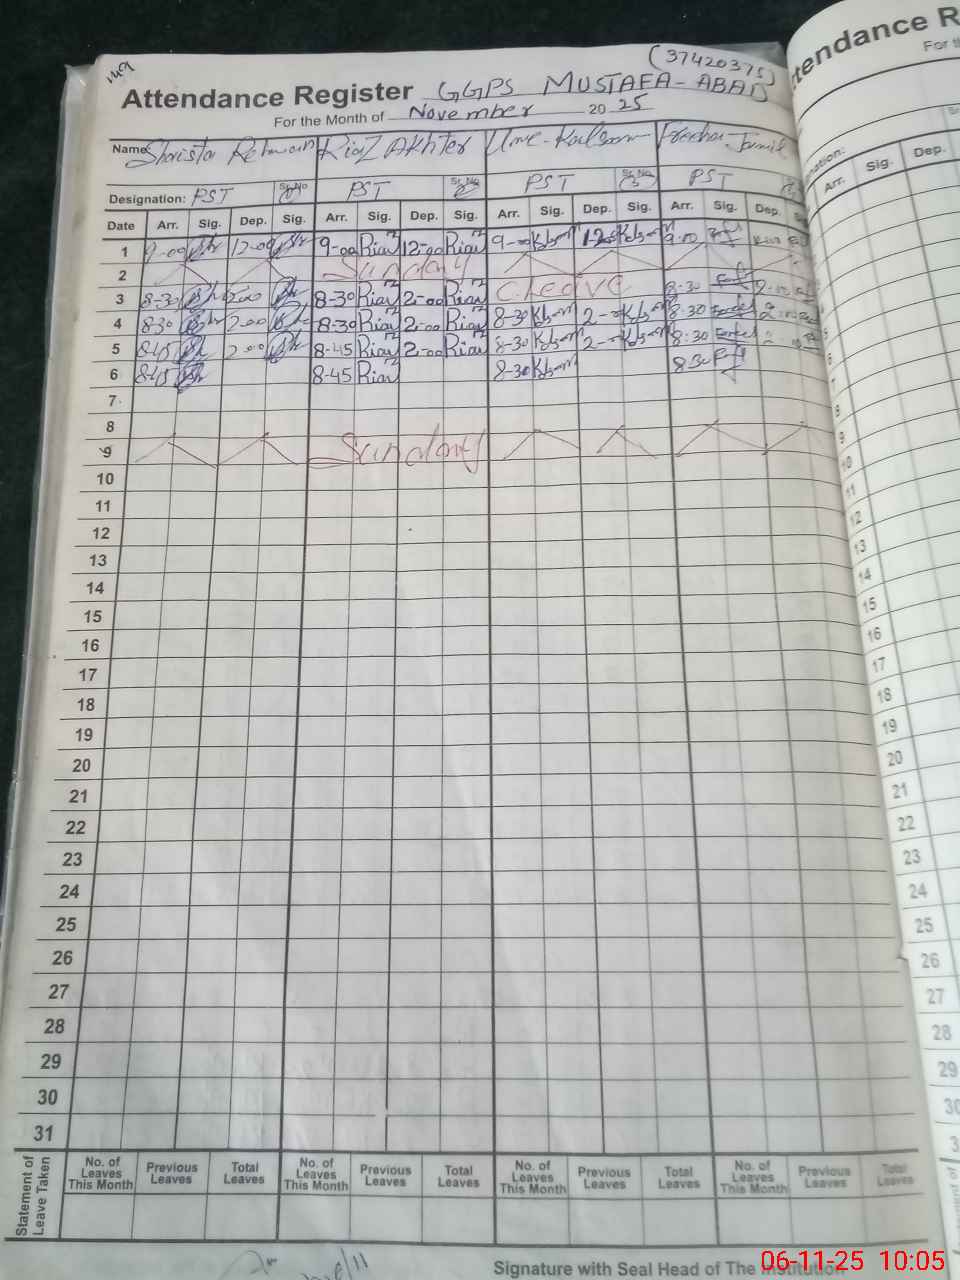 149
(37420375)
Attendance Register GGPS MUSTAFA-ABAD
For the Month of November 2025
Name Shaista Rehman Riaz Akhter Ume-Kalsoom Jamil
Designation: PST Sr.No PST Sr.No PST Sr.No PST
Date Arr. Sig. Dep. Sig. Arr. Sig. Dep. Sig. Arr. Sig. Dep. Sig. Arr. Sig. Dep.
1 9-00 12-00 9-00 Riaz 12-00 Riaz 9-00 9-00
2 Sunday
3 8-30 2-00 8-30 Riaz 2-00 Riaz C.leave 8-30 2-00
4 8-30 2-00 8-30 Riaz 2-00 Riaz 8-30 8-30
5 8-45 2-00 8-45 Riaz 2-00 Riaz 8-30 8-30
6 8-45 8-45 Riaz 8-30 8-30
7
8
9 Sunday
10
11
12
13
14
15
16
17
18
19
20
21
22
23
24
25
26
27
28
29
30
31
Statement of Leave Taken
No. of Leaves This Month Previous Leaves Total Leaves No. of Leaves This Month Previous Leaves Total Leaves No. of Leaves This Month Previous Leaves Total Leaves No. of Leaves This Month Previous Leaves Total Leaves
Signature with Seal Head of The Institution
06-11-25 10:05
tendance R
For th
Arr. Sig. Dep.
8
9
10
11
12
13
14
15
16
17
18
19
20
21
22
23
24
25
26
27
28
29
30